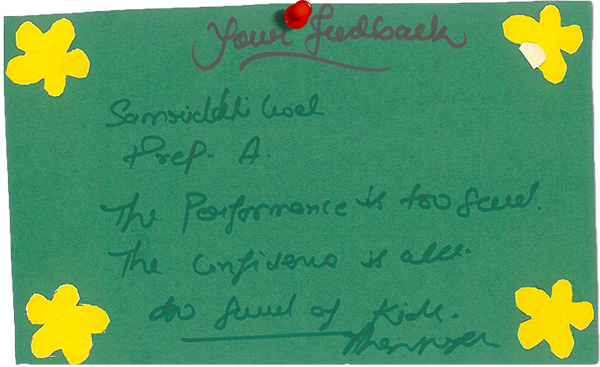 Your Feedback
Samriddhi Goel
Prep. A.
The Performance is too Good.
The Confidence is also
too Good of Kids.